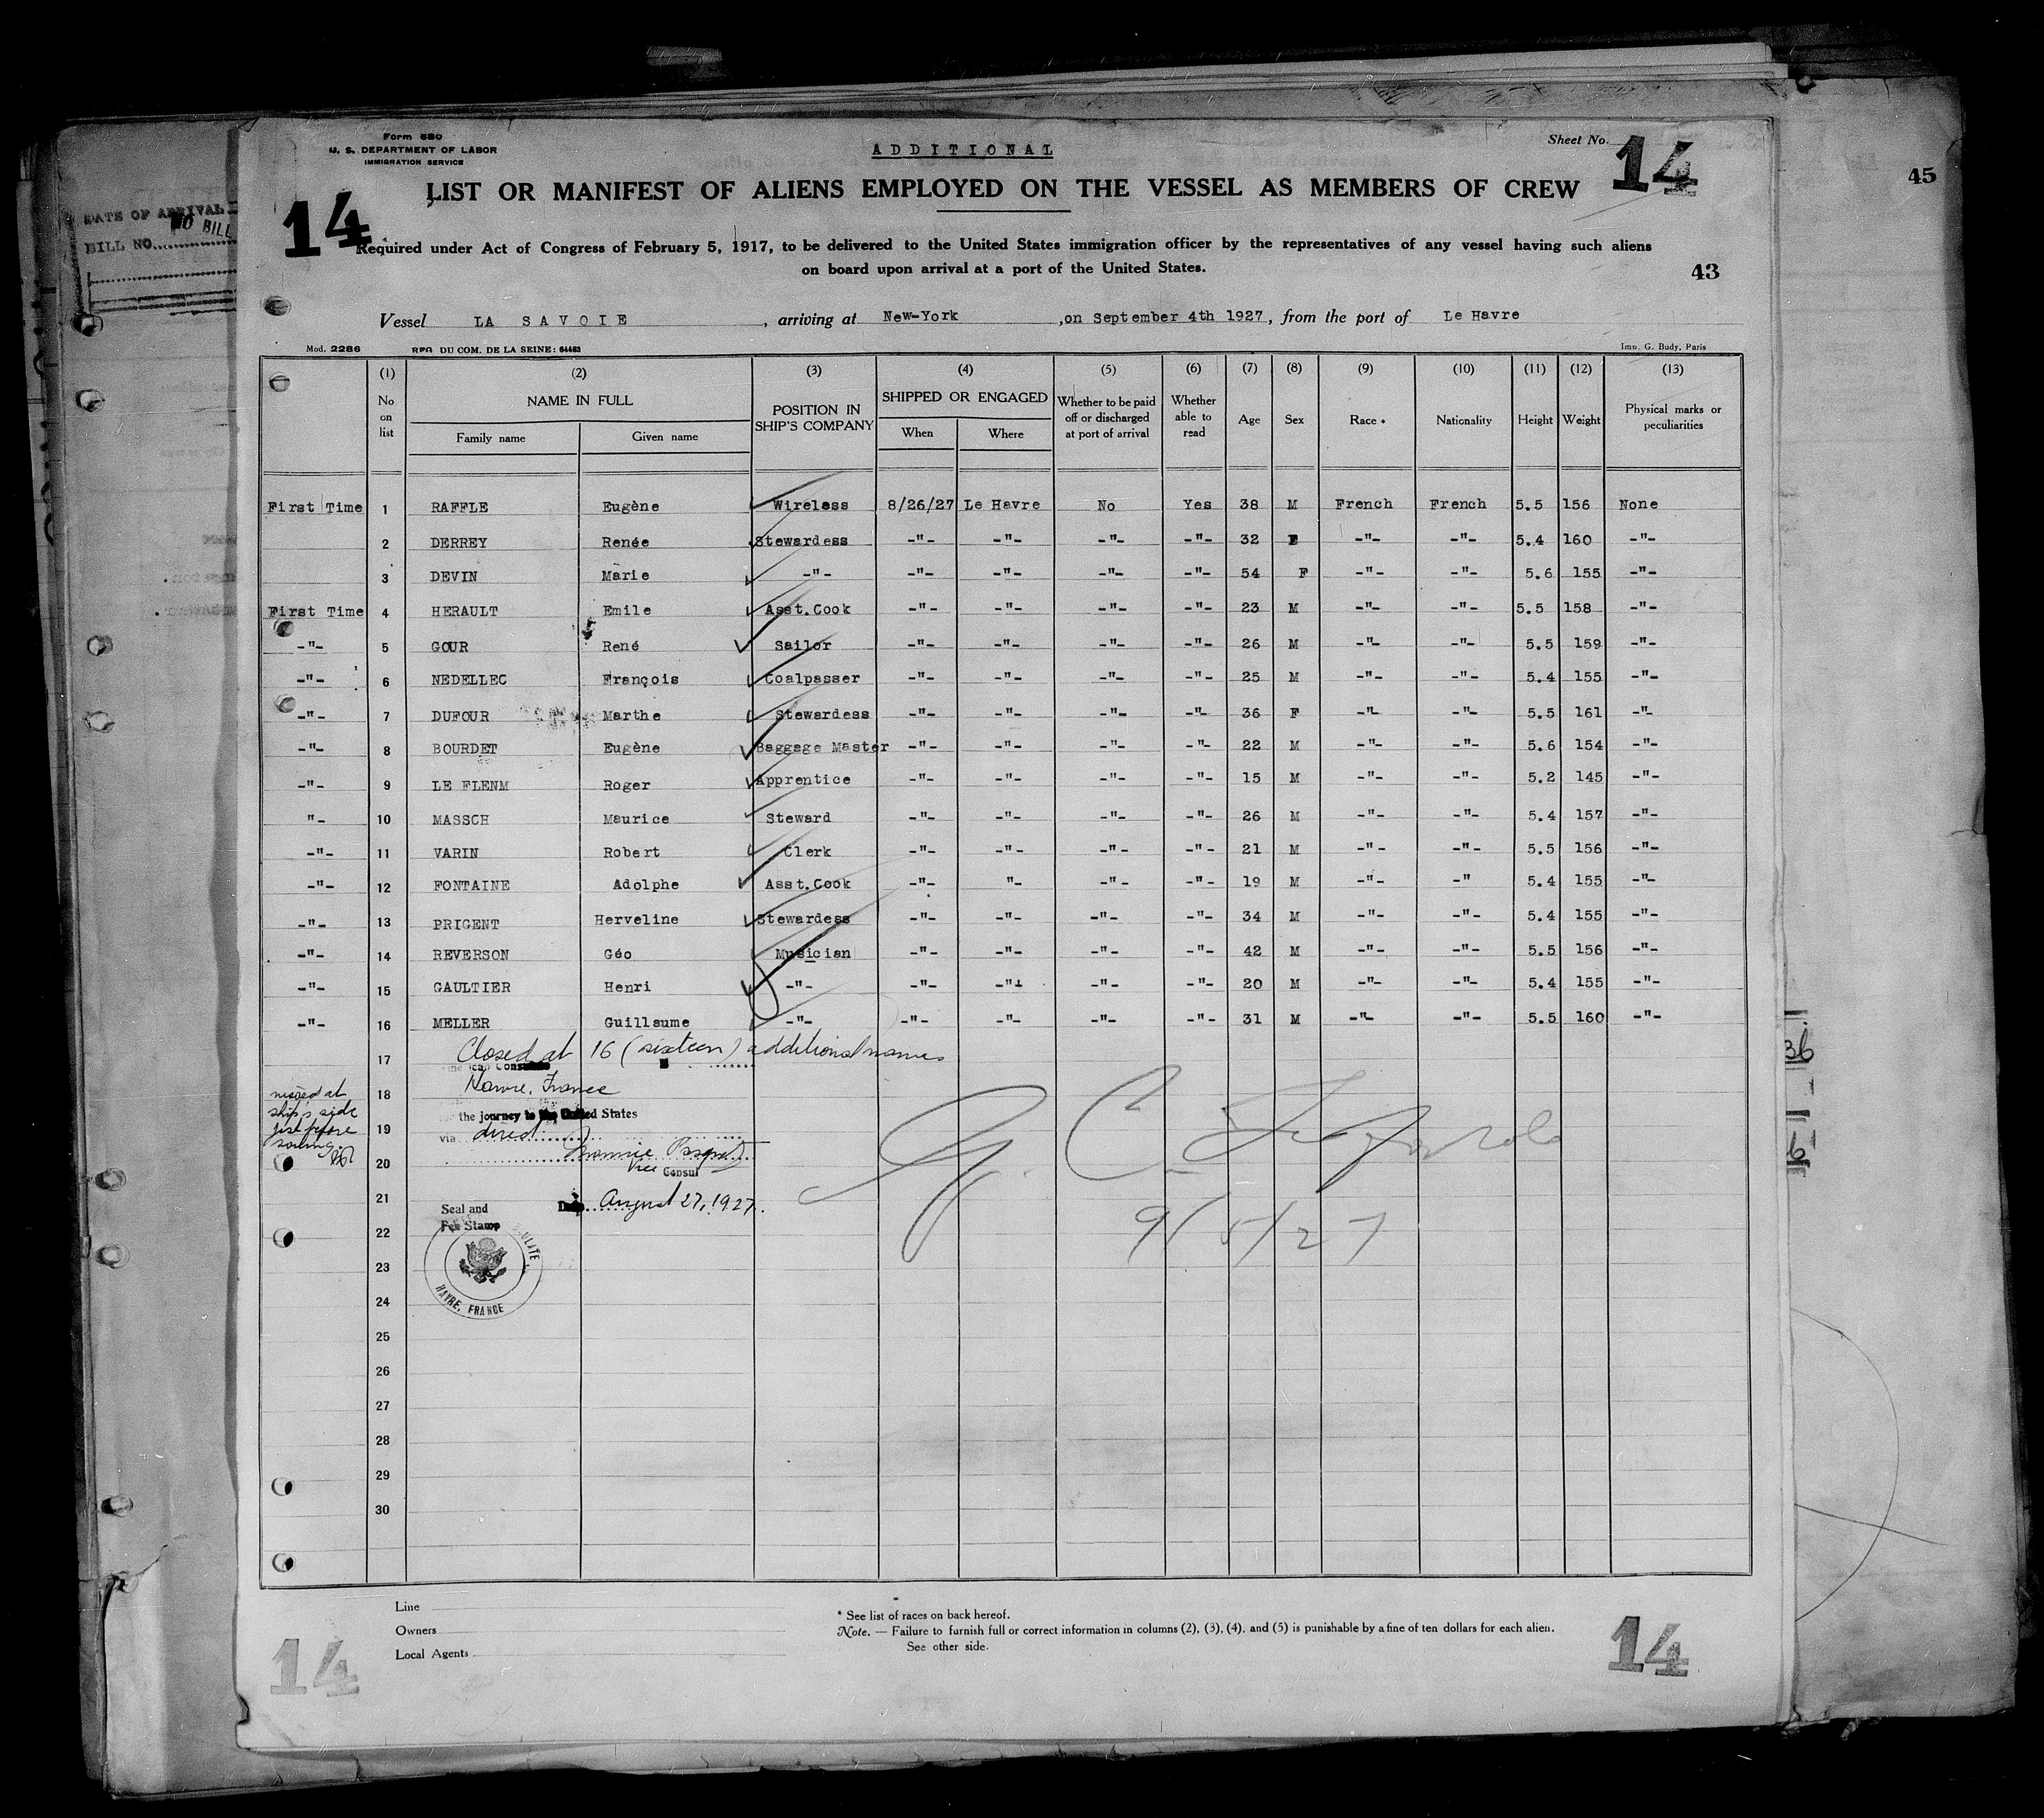 Form 680
U. S. DEPARTMENT OF LABOR
IMMIGRATION SERVICE
ADDITIONAL
Sheet No. 14
LIST OR MANIFEST OF ALIENS EMPLOYED ON THE VESSEL AS MEMBERS OF CREW
45
DATE OF ARRIVAL
NO BILL
BILL NO.
14
Required under Act of Congress of February 5, 1917, to be delivered to the United States immigration officer by the representatives of any vessel having such aliens
on board upon arrival at a port of the United States.
43
Vessel LA SAVOIE, arriving at New-York, on September 4th 1927, from the port of Le Havre
Mod. 2286 REG. DU COM. DE LA SEINE: 64483 Imp. G. Budy, Paris
(1) (2) (3) (4) (5) (6) (7) (8) (9) (10) (11) (12) (13)
No on list NAME IN FULL Family name Given name POSITION IN SHIP'S COMPANY SHIPPED OR ENGAGED When Where Whether to be paid off or discharged at port of arrival Whether able to read Age Sex Race * Nationality Height Weight Physical marks or peculiarities
First Time 1 RAFFLE Eugène Wireless 8/26/27 Le Havre No Yes 38 M French French 5.5 156 None
2 DERREY Renée Stewardess -"- -"- -"- -"- 32 F -"- -"- 5.4 160 -"-
3 DEVIN Marie -"- -"- -"- -"- -"- 54 F -"- -"- 5.6 155 -"-
First Time 4 HERAULT Emile Asst.Cook -"- -"- -"- -"- 23 M -"- -"- 5.5 158 -"-
-"- 5 GOUR René Sailor -"- -"- -"- -"- 26 M -"- -"- 5.5 159 -"-
-"- 6 NEDELLEC François Coalpasser -"- -"- -"- -"- 25 M -"- -"- 5.4 155 -"-
-"- 7 DUFOUR Marthe Stewardess -"- -"- -"- -"- 36 F -"- -"- 5.5 161 -"-
-"- 8 BOURDET Eugène Baggage Master -"- -"- -"- -"- 22 M -"- -"- 5.6 154 -"-
-"- 9 LE FLENM Roger Apprentice -"- -"- -"- -"- 15 M -"- -"- 5.2 145 -"-
"- 10 MASSCH Maurice Steward -"- -"- -"- -"- 26 M -"- -"- 5.4 157 -"-
-"- 11 VARIN Robert Clerk -"- -"- -"- -"- 21 M -"- -"- 5.5 156 -"-
-"- 12 FONTAINE Adolphe Asst.Cook -"- "- -"- -"- 19 M -"- -" 5.4 155 -"-
-"- 13 PRIGENT Herveline Stewardess -"- -"- -"- -"- 34 M -"- -"- 5.4 155 -"-
-"- 14 REVERSON Géo Musician -"- -"- -"- -"- 42 M -"- -"- 5.5 156 -"-
-"- 15 GAULTIER Henri -"- -"- -"- -"- -"- 20 M -"- -"- 5.4 155 -"-
-"- 16 MELLER Guillaume -"- -"- -"- -"- -"- 31 M -"- -"- 5.5 160 -"-
17 Closed at 16 (sixteen) additional names
18 Havre, France
the journey to the United States
19 via direct
20
Vice Consul
21 Seal and Date August 27, 1927.
22 Fee Stamp
HAVRE, FRANCE
23
24
25
26
27
28
29
30
ship's side
just before
sailing
9/5/27
36
Line
Owners
Local Agents
* See list of races on back hereof.
Note. — Failure to furnish full or correct information in columns (2), (3), (4), and (5) is punishable by a fine of ten dollars for each alien.
See other side.
14
14